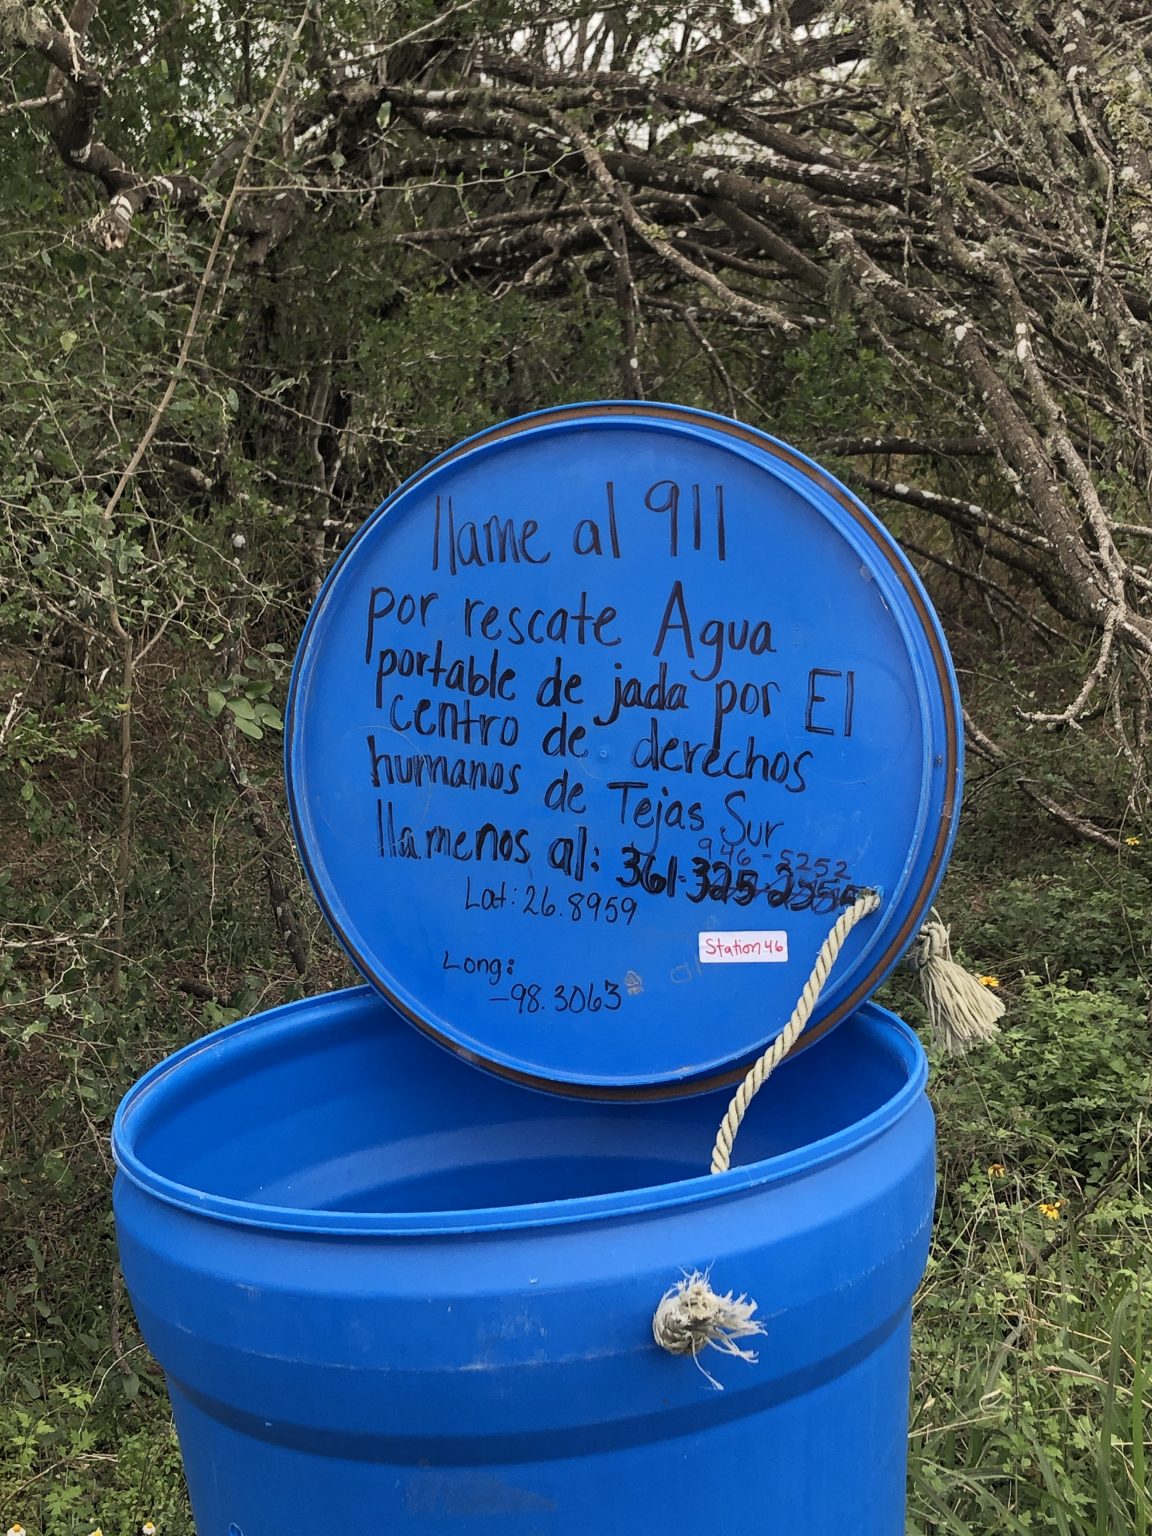 llame al 911
por rescate Agua
portable de jada por El
centro de derechos
humanos de Tejas Sur
946-5252
llamenos al: 361-325-2555
Lat: 26.8959
Station 46
Long:
-98.3063